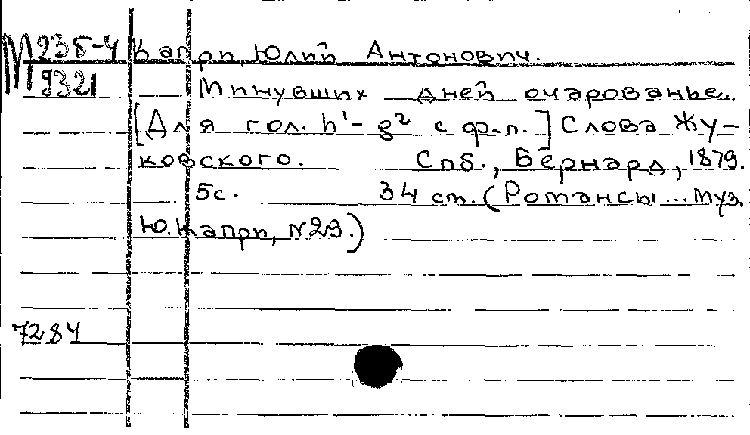 М 235-4 Капри, Юлий Антонович.
9321 Минувших дней очарованье..
[Для гол. h¹-g² с ф.п.] Слова Жу-
ковского. Спб., Бернард, 1879.
5с. 34 ст. (Романсы... муз.
Ю. Капри, №29.)
7284